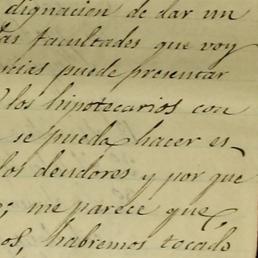 dignacion de dar un
as facultades que voy
cies puede presentar
los hipotecarios con
se pueda hacer es
los deudores y por que
; me parece que,
os, habremos tocado